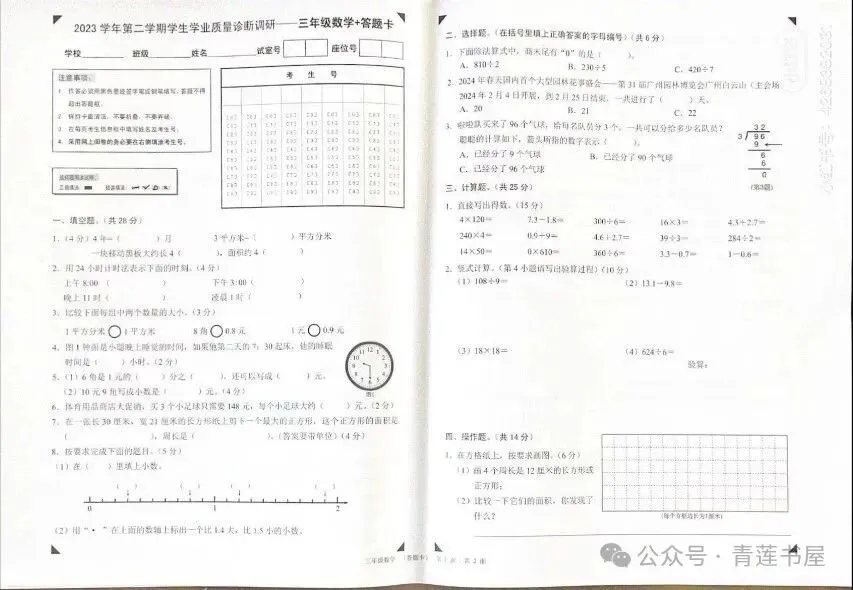 2023学年第二学期学生学业质量诊断调研——三年级数学+答题卡
学校 班级 姓名 试室号 座位号
注意事项:
2. 保持卡面清洁,不要折叠、不要弄破。
3. 在每页考生信息栏中填写姓名及考生号。
考 生 号
一、填空题。(共28分)
1.(4分)4年=( )月 3平方米=( )平方分米
一块移动黑板大约长4( ),面积约4( )
2. 用24小时计时法表示下面的时刻。(4分)
上午8:00( ) 下午3:00( )
晚上11时( ) 凌晨1时( )
3. 比较下面每组中两个数量的大小。(3分)
1平方分米○1平方米 8角○0.8元 1元○0.9元
4. 图1钟面是小聪晚上睡觉的时间,如果他第二天的7:30起床,他的睡眠
时间是( )小时。(2分)
图1
5.(1)6角是1元的( )分之( ),还可以写成( )元。
(2)10元9角写成小数是( )元。(4分)
6. 体育用品商店大促销,买3个小足球只需要148元,每个小足球大约( )元。(2分)
7. 在一张长30厘米,宽21厘米的长方形纸上剪下一个最大的正方形,这个正方形的面积是
( ),周长是( )。(答案要带单位)(4分)
8. 按要求完成下面的题目。(5分)
(1)在( )里填上小数。
( ) ( ) ( ) ( )
0 1 2
(2)用“·”在上面的数轴上标出一个比1.4大,比1.5小的小数。
二、选择题。(在括号里填上正确答案的字母编号)(共6分)
1. 下面除法算式中,商末尾有“0”的是( )。
A. 810÷2 B. 230÷5 C. 420÷7
2. 2024年春天国内首个大型园林花事盛会——第31届广州园林博览会广州白云山(主会场
2024年2月4日开展,到2月25日结束,一共进行了( )天。
A. 20 B. 21 C. 22
3. 啦啦队买来了96个气球,给每名队员分3个,一共可以分给多少名队员?
聪聪的计算如下,箭头所指的数字表示( )。
A. 已经分了9个气球 B. 已经分了90个气球
C. 已经分了96个气球
32
3 96
9
6
6
0
(第3题)
三、计算题。(共25分)
1. 直接写出得数。(15分)
4×120= 7.3-1.8= 300÷6= 16×3= 4.3+2.7=
240×4= 0.9+9= 4.6+2.7= 39÷3= 284÷2=
14×50= 0×610= 360÷6= 3.3-0.7= 1-0.6=
2. 竖式计算。(第4小题请写出验算过程)(10分)
(1)108÷9= (2)13.1-9.8=
(3)18×18= (4)624÷6=
验算:
四、操作题。(共14分)
1. 在方格纸上,按要求画图。(6分)
(1)画4个周长是12厘米的长方形或
正方形;
(2)比较一下它们的面积,你发现了
什么?
(每个方格边长为1厘米)
三年级数学 (答题卡) 第1面 共2面
公众号·青莲书屋